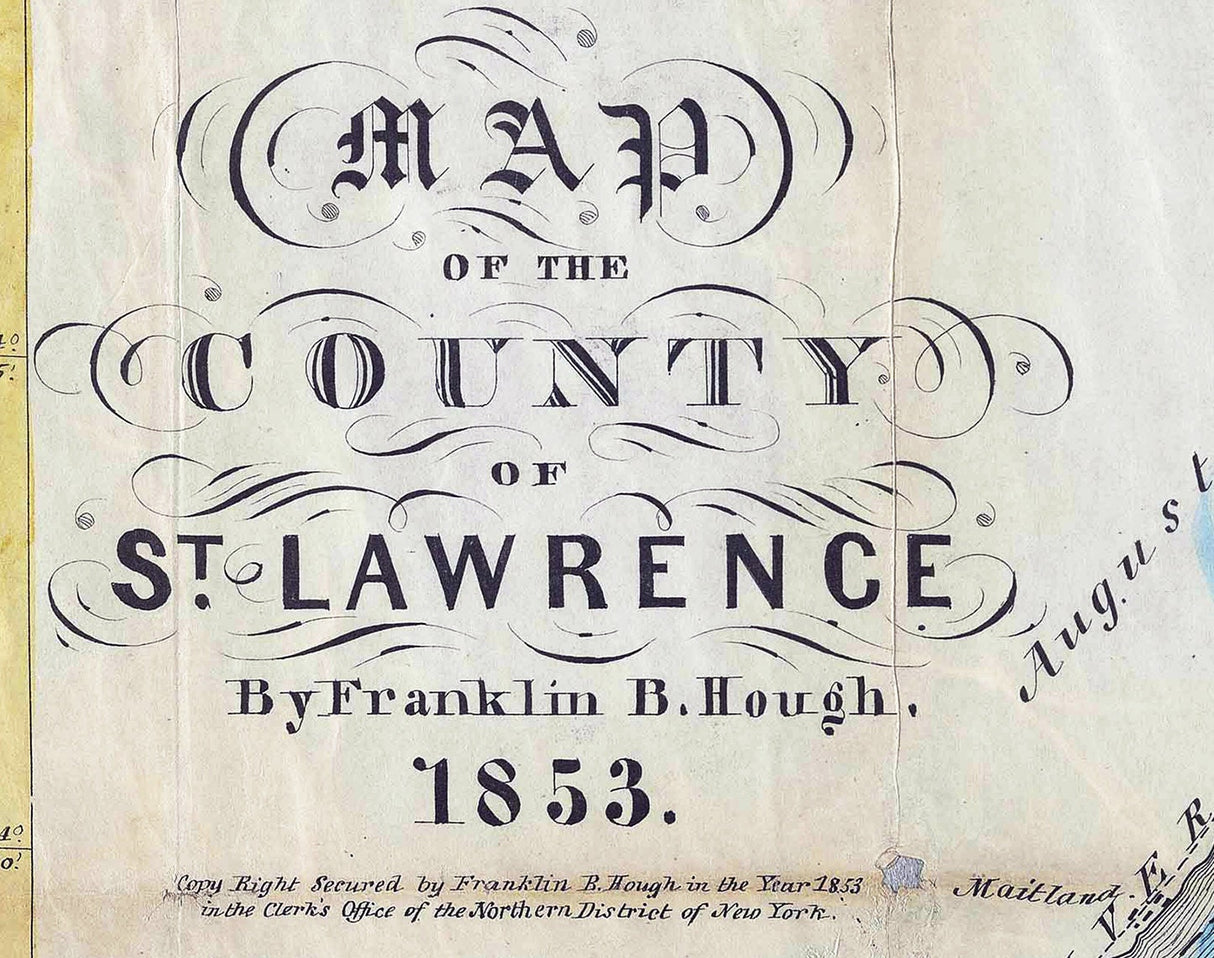 MAP
OF THE
COUNTY
OF
ST. LAWRENCE
By Franklin B. Hough.
1853.
Copy Right Secured by Franklin B. Hough in the Year 1853
in the Clerk's Office of the Northern District of New York.
August
Maitland
VER